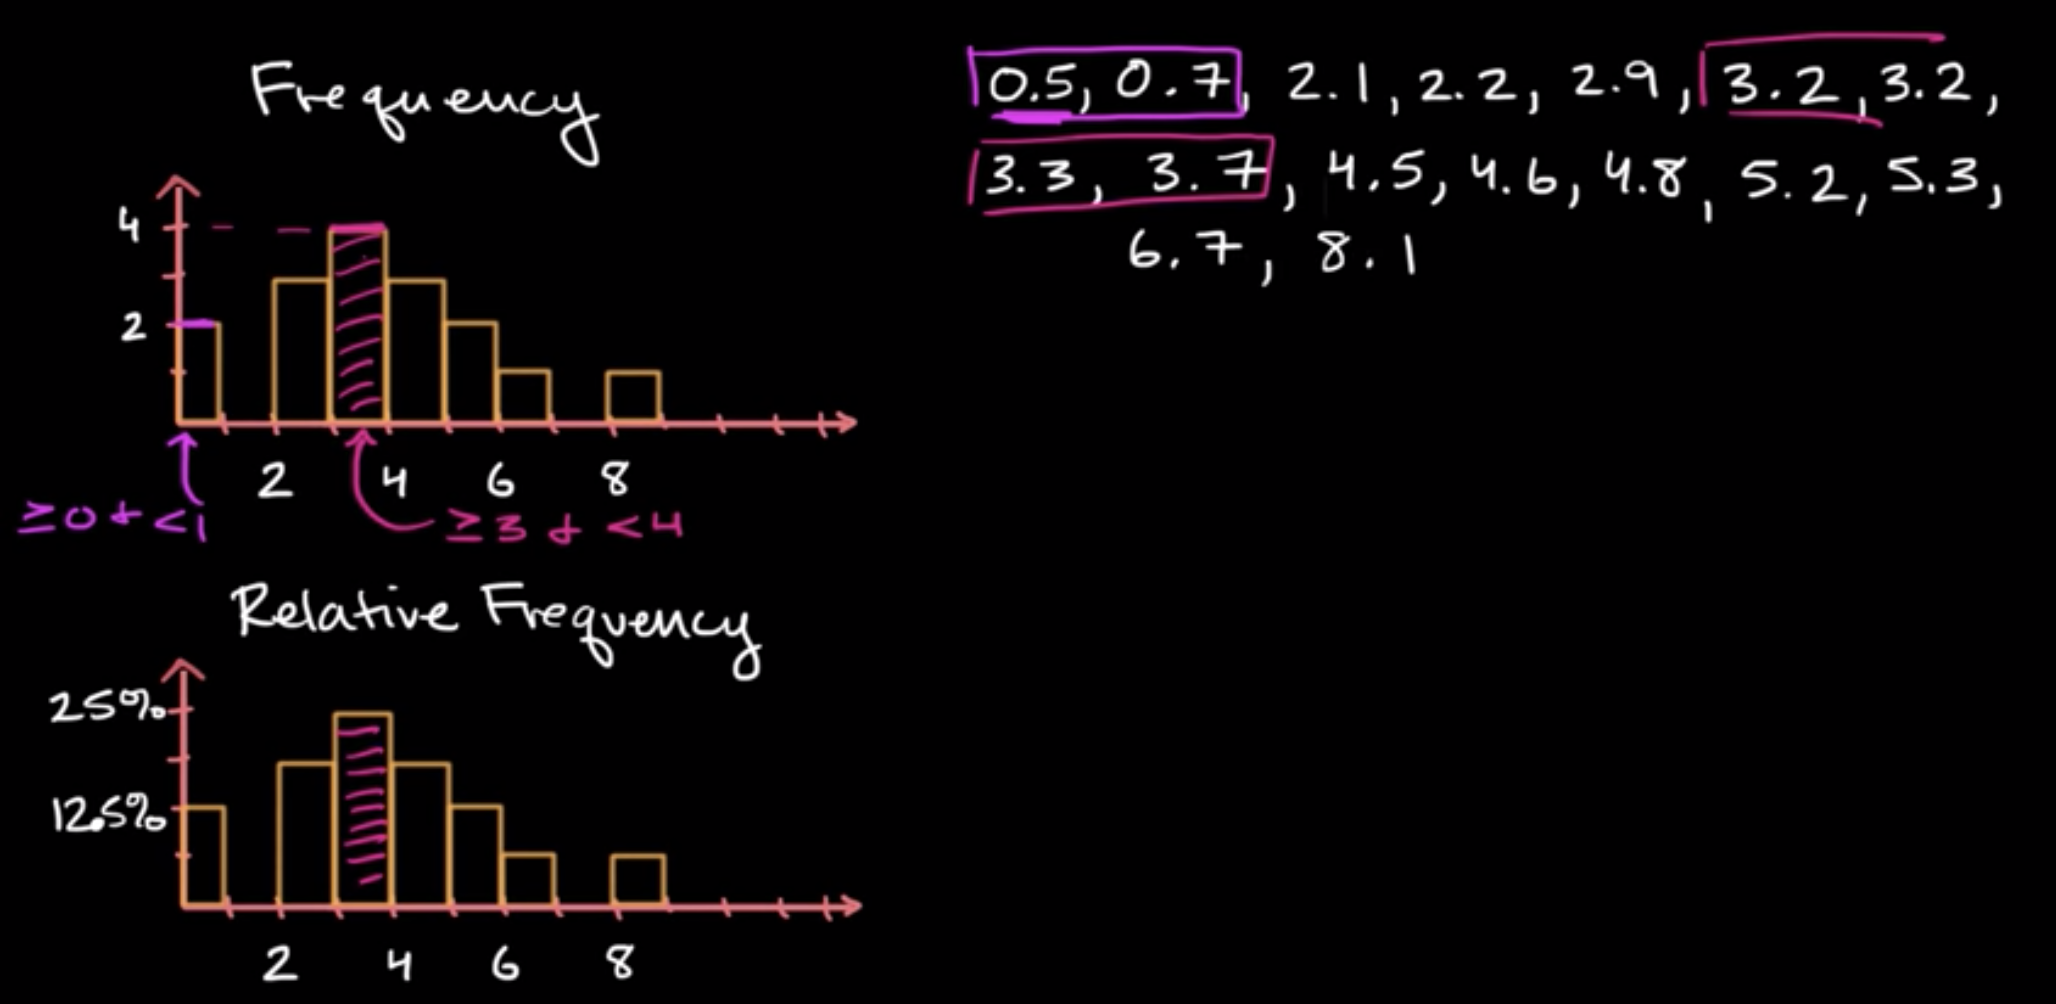 Frequency
0.5, 0.7, 2.1, 2.2, 2.9, 3.2, 3.2,
3.3, 3.7, 4.5, 4.6, 4.8, 5.2, 5.3,
6.7, 8.1
4
2
2 4 6 8
≥0 + <1
≥3 & <4
Relative Frequency
25%
12.5%
2 4 6 8